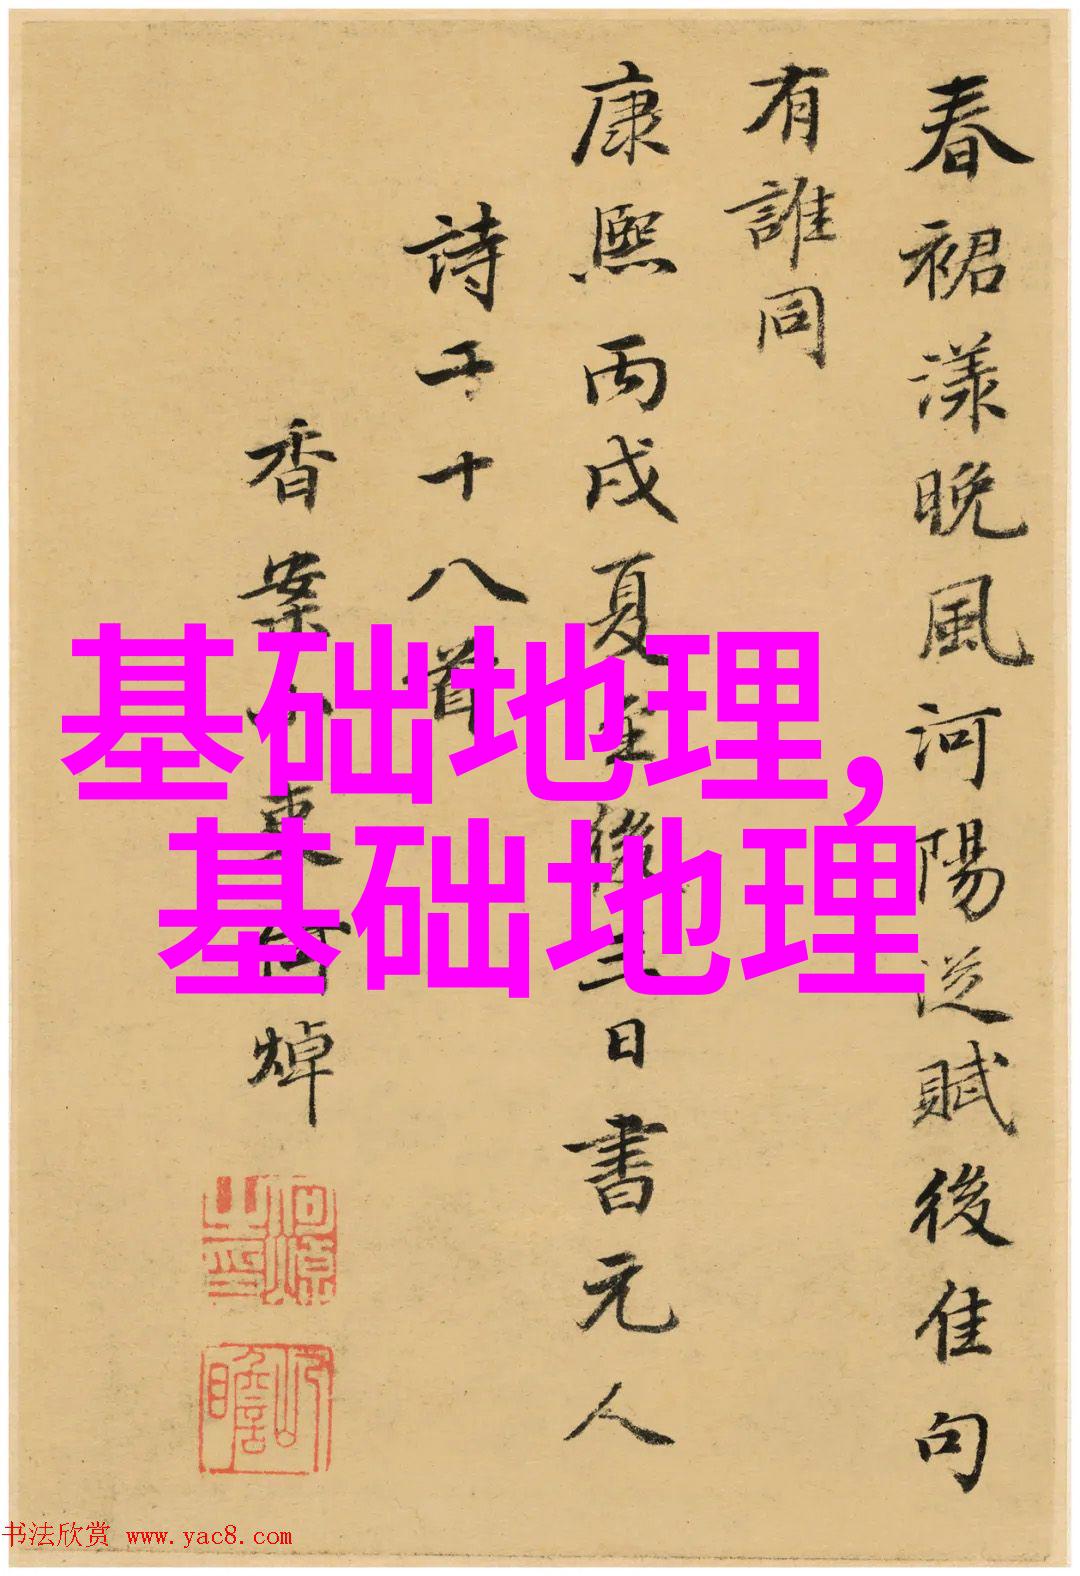 春裙漾晚風河陽從賦後佳句
有誰同
康熙丙戌夏至後三日書元人
詩五十八首
香案小吏何焯
基础地理,
基础地理
书法欣赏 www.yac8.com